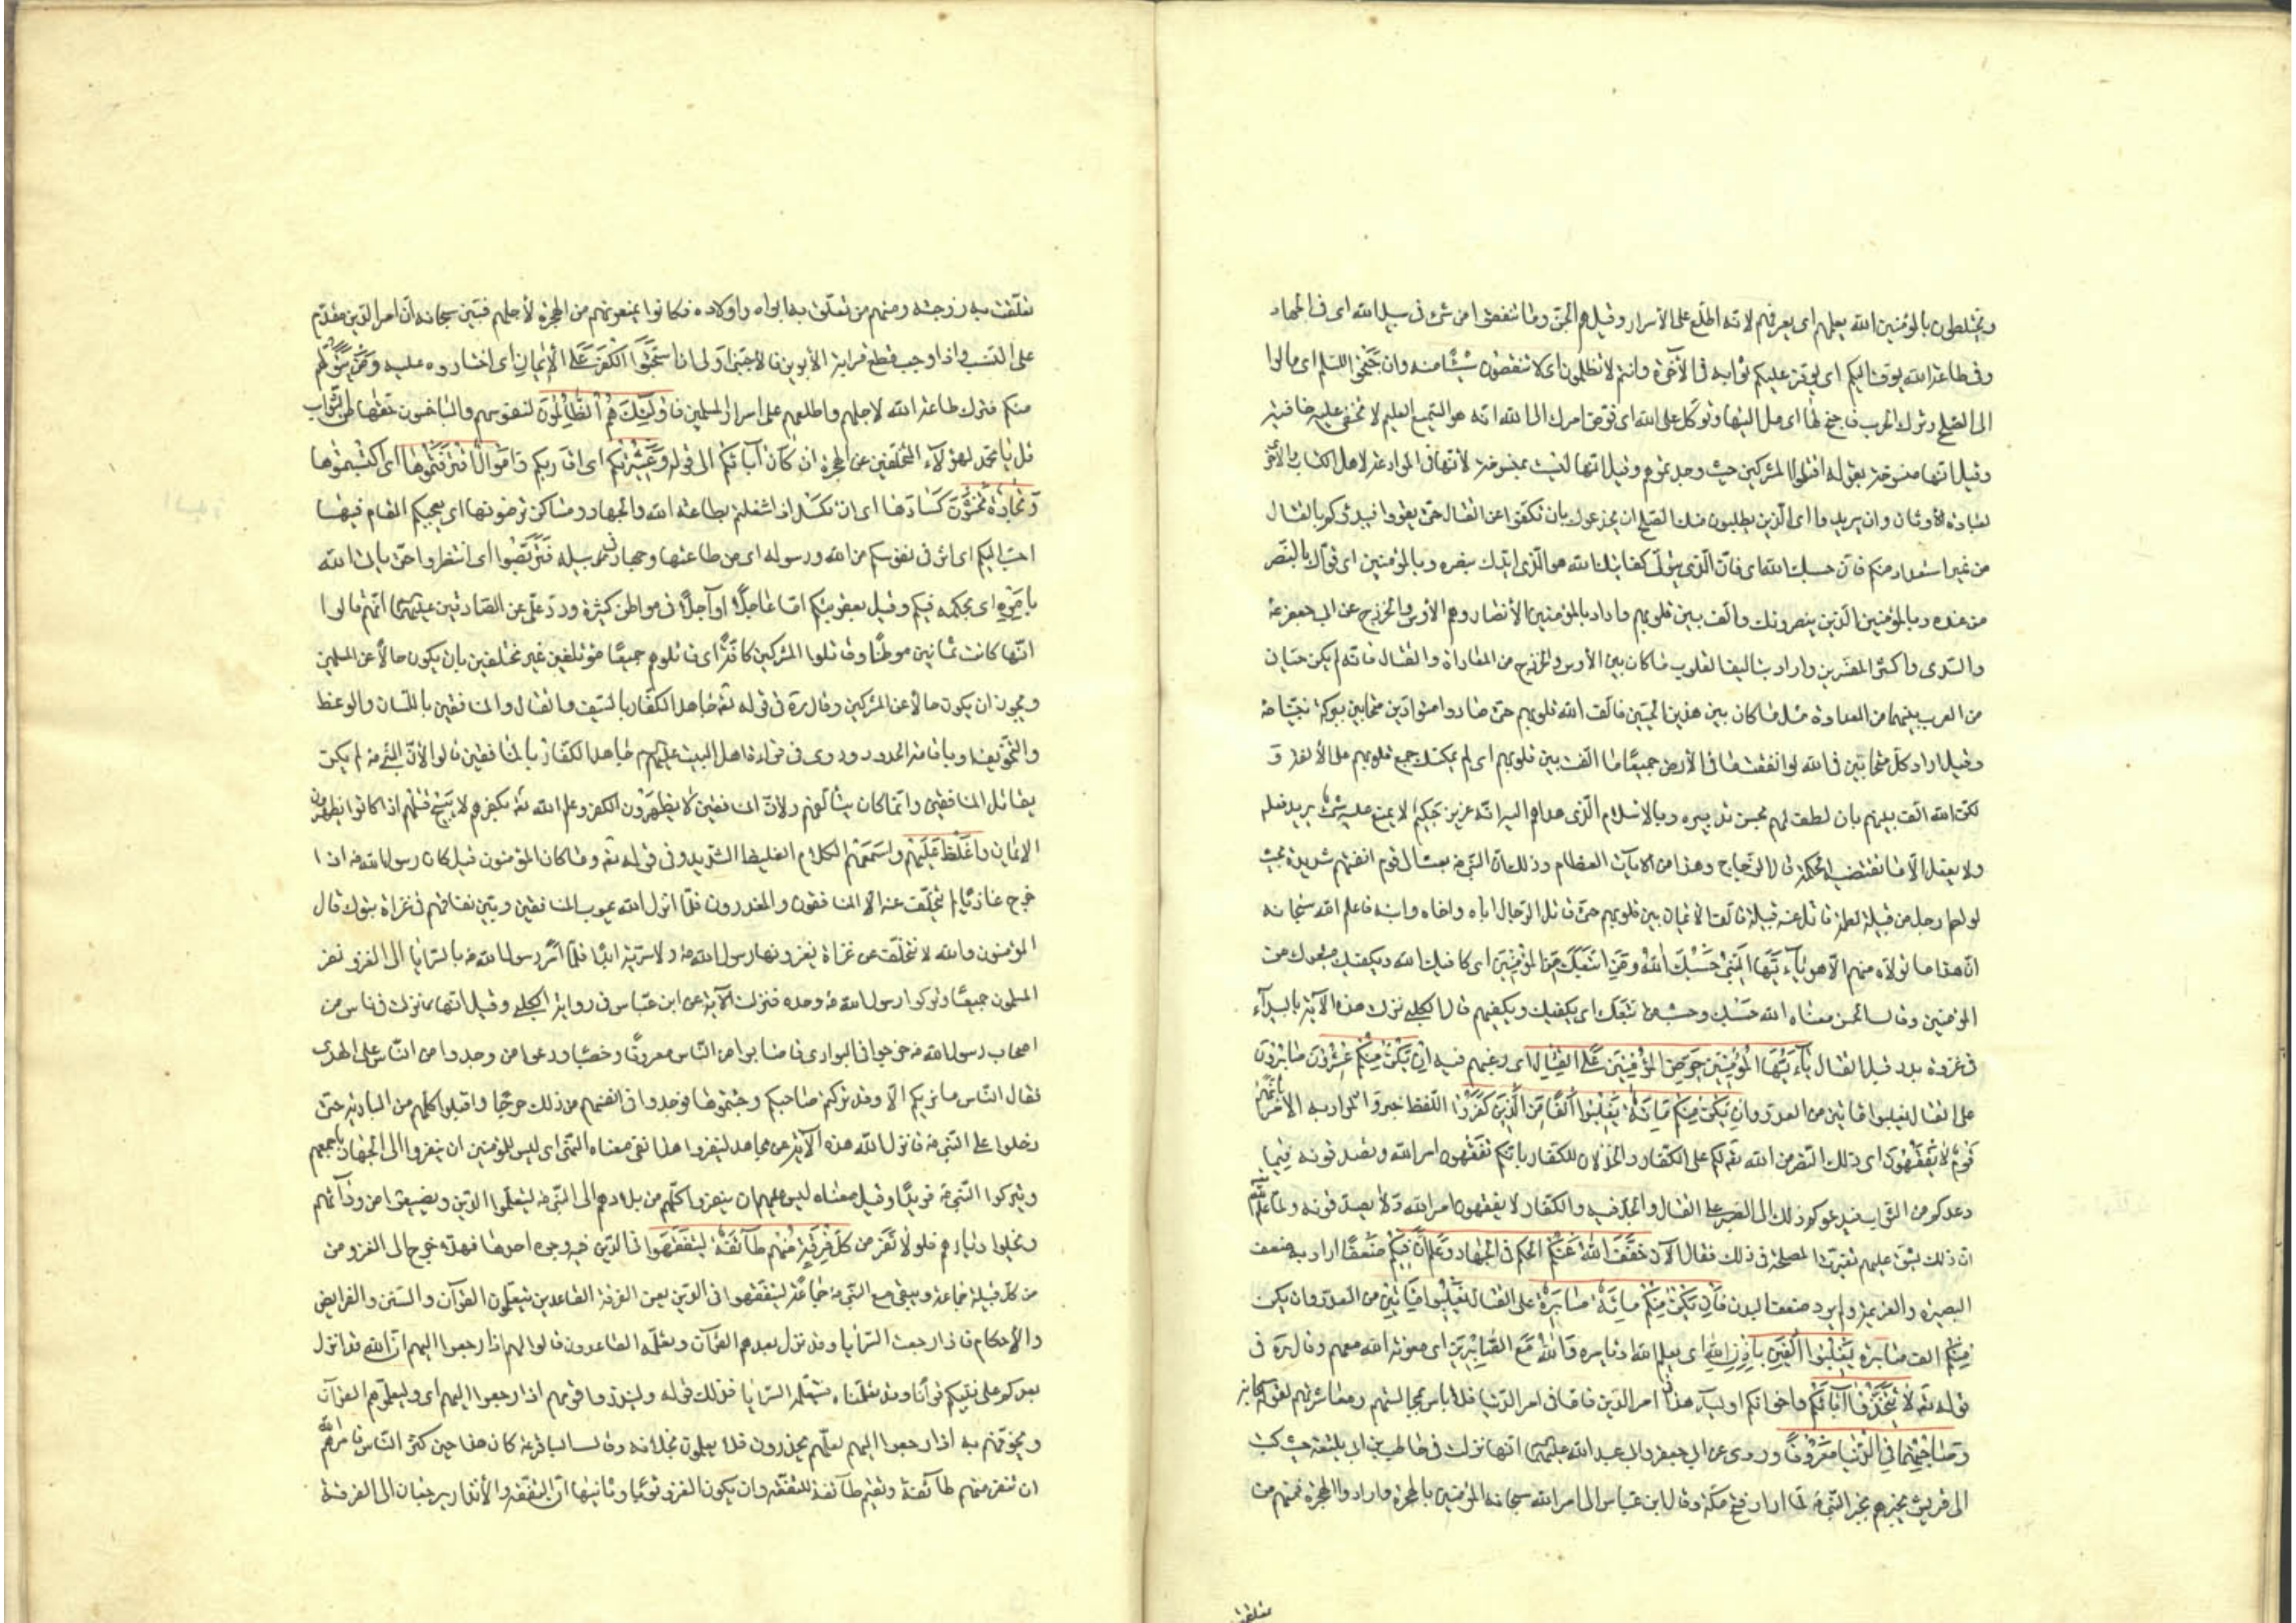 ويختلطون بالمؤمنين الله يعلمهم اى يعرفهم لانه اطلع على الأسرار وقيل هم الجن وما تنفقوا من شئ فى سبيل الله اى فى الجهاد
وفى طاعة الله يوف اليكم اى يوفر عليكم ثوابه فى الآخرة وانتم لا تظلمون اى لا تنقصون شيئًا منه وان جنحوا للسلم اى مالوا
الى الصلح وترك الحرب فاجنح لها اى مل اليها وتوكل على الله اى فوض امرك الى الله انه هو السميع العليم لا تخفى عليه خافية
وقيل انها منسوخة بقوله اقتلوا المشركين حيث وجدتموهم وقيل انها ليست بمنسوخة لأنها فى الموادعة لاهل الكتاب والأخرى
لعبادة الأوثان وان يريدوا اى الذين يطلبون منك الصلح ان يخدعوك بان تكفوا عن القتال حتى يقووا فيبدؤكم بالقتال
من غير استعداد منكم فان حسبك الله اى فان الذى يتولى كفايتك الله هو الذى ايدك بنصره وبالمؤمنين اى قواك بالنصر
من عنده وبالمؤمنين الذين ينصرونك والف بين قلوبهم واراد بالمؤمنين الأنصار وهم الأوس والخزرج عن ابى جعفر ع
والسدى واكثر المفسرين واراد بتاليف القلوب ما كان بين الأوس والخزرج من المعاداة والقتال فانه لم يكن حيان
من العرب بينهما من العداوة مثل ما كان بين هذين الحيين فالف الله قلوبهم حتى صاروا متوادين متحابين ببركة نبينا ص
وقيل اراد كل متحابين فى الله لو انفقت ما فى الأرض جميعًا ما الفت بين قلوبهم اى لم يمكنك جمع قلوبهم على الألفة و
لكن الله الف بينهم بان لطف لهم بحسن تدبيره وبالاسلام الذى هداهم اليه انه عزيز حكيم لا يمتنع عليه شئ يريد فعله
ولا يفعل الا ما تقتضيه الحكمة قال الزجاج وهذا من الآيات العظام وذلك ان النبى ص بعث الى قوم انفتهم شديدة بحيث
لو لطم رجل من قبيلة لطمة قاتل عنه قبيلة فالف الأيمان بين قلوبهم حتى قاتل الرجل اباه واخاه وابنه فاعلم الله سبحانه
ان هذا ما تولاه منهم الا هو يا ايها النبى حسبك الله ومن اتبعك من المؤمنين اى كافيك الله ويكفيك متبعوك من
المؤمنين وقال الحسن معناه الله حسبك وحسب من اتبعك اى يكفيك ويكفيهم قال الكلبى نزلت هذه الآية بالبيدآء
فى غزوة بدر قبل القتال يآ ايها النبى حرض المؤمنين على القتال اى رغبهم فيه ان يكن منكم عشرون صابرون
على القتال يغلبوا مائتين من العدو وان يكن منكم مائة يغلبوا الفا من الذين كفروا اللفظ خبر والمراد به الأمر بانهم
قوم لا يفقهون اى ذلك النصر من الله تع لكم على الكفار والخذلان للكفار بانكم تفقهون امر الله وتصدقونه فيما
وعدكم من الثواب فيدعوكم ذلك الى الصبر على القتال والجد فيه والكفار لا يفقهون امر الله ولا يصدقونه ولما علم الله
ان ذلك يشق عليهم تغيرت المصلحة فى ذلك فقال الآن خفف الله عنكم الحكم فى الجهاد وعلم ان فيكم ضعفًا اراد به ضعف
البصيرة والعزيمة ولم يرد ضعف البدن فان يكن منكم مائة صابرة على القتال يغلبوا مائتين من العدو وان يكن
منكم الف صابرة يغلبوا الفين باذن الله اى بعلم الله او بامره والله مع الصابرين اى معونة الله معهم وقال ره فى
قوله تع لا تتخذوا آبائكم واخوانكم اوليآء هذا فى امر الدين فاما فى امر الدنيا فلا باس بمجالستهم ومعاشرتهم لقوله سبحانه
وصاحبهما فى الدنيا معروفًا وروى عن ابى جعفر وابى عبد الله عليهما انها نزلت فى حاطب بن ابى بلتعة حيث كتب
الى قريش يخبرهم بخبر النبى ص لما اراد فتح مكة وقال ابن عباس لما امر الله سبحانه المؤمنين بالهجرة وارادوا الهجرة فمنهم من
تعلقت به زوجته ومنهم من تعلق به ابواه واولاده فكانوا يمنعونهم من الهجرة لأجلهم فبين سبحانه ان امر الدين مقدم
على النسب واذا وجب قطع قرابة الأبوين فالاجنبى اولى ان استحبوا الكفر على الايمان اى اختاروه عليه ومن يتولهم
منكم فترك طاعة الله لاجلهم واطلعهم على اسرار المسلمين فاولئك هم الظالمون لنفوسهم والباخسون حقها من الثواب
قل يا محمد لهؤلآء المتخلفين عن الهجرة ان كان آبائكم الى قوله وعشيرتكم اى اقاربكم واموال اقترفتموها اى اكتسبتموها
وتجارة تخشون كسادها اى ان تكسد اذا اشتغلتم بطاعة الله والجهاد ومساكن ترضونها اى يعجبكم المقام فيها
احب اليكم اى اثر فى نفوسكم من الله ورسوله اى من طاعتهما وجهاد فى سبيله فتربصوا اى انتظروا حتى ياتى الله
بامره اى بحكمه فيكم وقيل بعقوبتكم اما عاجلًا او آجلًا فى مواطن كثيرة ورد على عن الصادقين عليهما انهم قالوا
انها كانت ثمانين موطنًا وقاتلوا المشركين كافة اى قاتلوهم جميعًا مؤتلفين غير مختلفين بان يكون حالًا عن المسلمين
ويجوز ان يكون حالًا عن المشركين وقال ره فى قوله تع جاهد الكفار بالسيف والقتال والمنافقين باللسان والوعظ
والتخويف او باقامة الحدود وروى فى قراءة اهل البيت عليهم جاهد الكفار بالمنافقين قالوا لأن النبى ص لم يكن
يقاتل المنافقين وانما كان يتالفهم ولأن المنافقين لا يظهرون الكفر وعلم الله تع بكفرهم لا يبيح قتلهم اذا كانوا يظهرون
الايمان واغلظ عليهم واسمعهم الكلام الغليظ الشديد وفى قوله تع وما كان المؤمنون قيل كان رسول الله ص اذا
خرج غازيًا لم يتخلف عنه الا المنافقون والمعذرون فلما انزل الله عيوب المنافقين وبين نفاقهم فى غزاة تبوك قال
المؤمنون والله لا نتخلف عن غزاة يغزوها رسول الله ص ولا سرية ابدًا فلما امر رسول الله ص بالسرايا الى الغزو نفر
المسلمون جميعًا وتركوا رسول الله ص وحده فنزلت الآية عن ابن عباس فى رواية الكلبى وقيل انها نزلت فى ناس من
اصحاب رسول الله ص خرجوا فى البوادى فاصابوا من الناس معروفًا وخصبًا ودعوا من وجدوا من الناس على الهدى
فقال الناس ما نريكم الا وقد تركتم صاحبكم وجئتمونا فوجدوا فى انفسهم من ذلك حرجًا واقبلوا كلهم من البادية حتى
دخلوا على النبى ص فانزل الله هذه الآية عن مجاهد لينفروا هذا نفى معناه النهى اى ليس للمؤمنين ان ينفروا الى الجهاد باجمعهم
ويتركوا النبى ص فريدًا وقيل معناه ليس عليهم ان ينفروا كلهم من بلادهم الى النبى ص ليتعلموا الدين ويضيعوا من ورآئهم
ويخلوا ديارهم فلولا نفر من كل فرقة منهم طآئفة ليتفقهوا فى الدين فيه وجوه احدها فهلا خرج الى الغزو من
من كل قبيلة جماعة ويبقى مع النبى ص جماعة ليتفقهوا فى الدين يعنى الفرقة القاعدين يتعلمون القرآن والسنن والفرايض
والأحكام فاذا رجعت السرايا وقد نزل بعدهم القرآن وتعلمه القاعدون قالوا لهم اذا رجعوا اليهم ان الله قد انزل
بعدكم على نبيكم قرآنا وقد تعلمناه فتتعلمه السرايا فذلك قوله ولينذروا قومهم اذا رجعوا اليهم اى وليعلموهم القرآن
ويخوفهم به اذا رجعوا اليهم لعلهم يحذرون فلا يعملون بخلافه وقال الباقر ع كان هذا حين كثر الناس فامرهم الله
ان تنفر منهم طآئفة وتقيم طآئفة للتفقه وان يكون الغزو نوبًا وثانيها ان التفقه والأنذار يرجعان الى الفرقة